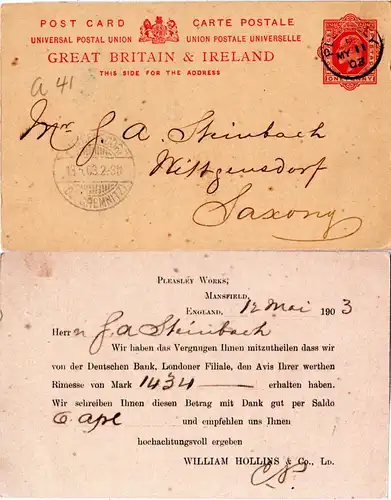 POST CARD CARTE POSTALE
UNIVERSAL POSTAL UNION UNION POSTALE UNIVERSELLE
GREAT BRITAIN & IRELAND
THIS SIDE FOR THE ADDRESS
MY 11
03
ONE PENNY
a 41
Mr. J. A Steinbach
Wittgensdorf
Saxony
PLEASLEY WORKS,
MANSFIELD,
ENGLAND, 12 Mai 1903
Herrn J. A Steinbach
Wir haben das Vergnugen Ihnen mitzutheilen dass wir
von der Deutschen Bank, Londoner Filiale, den Avis Ihrer werthen
Rimesse von Mark 1434 — erhalten haben.
Wir schreiben Ihnen diesen Betrag mit Dank gut per Saldo
6 Apl und empfehlen uns Ihnen
hochachtungsvoll ergeben
WILLIAM HOLLINS & Co., LD.